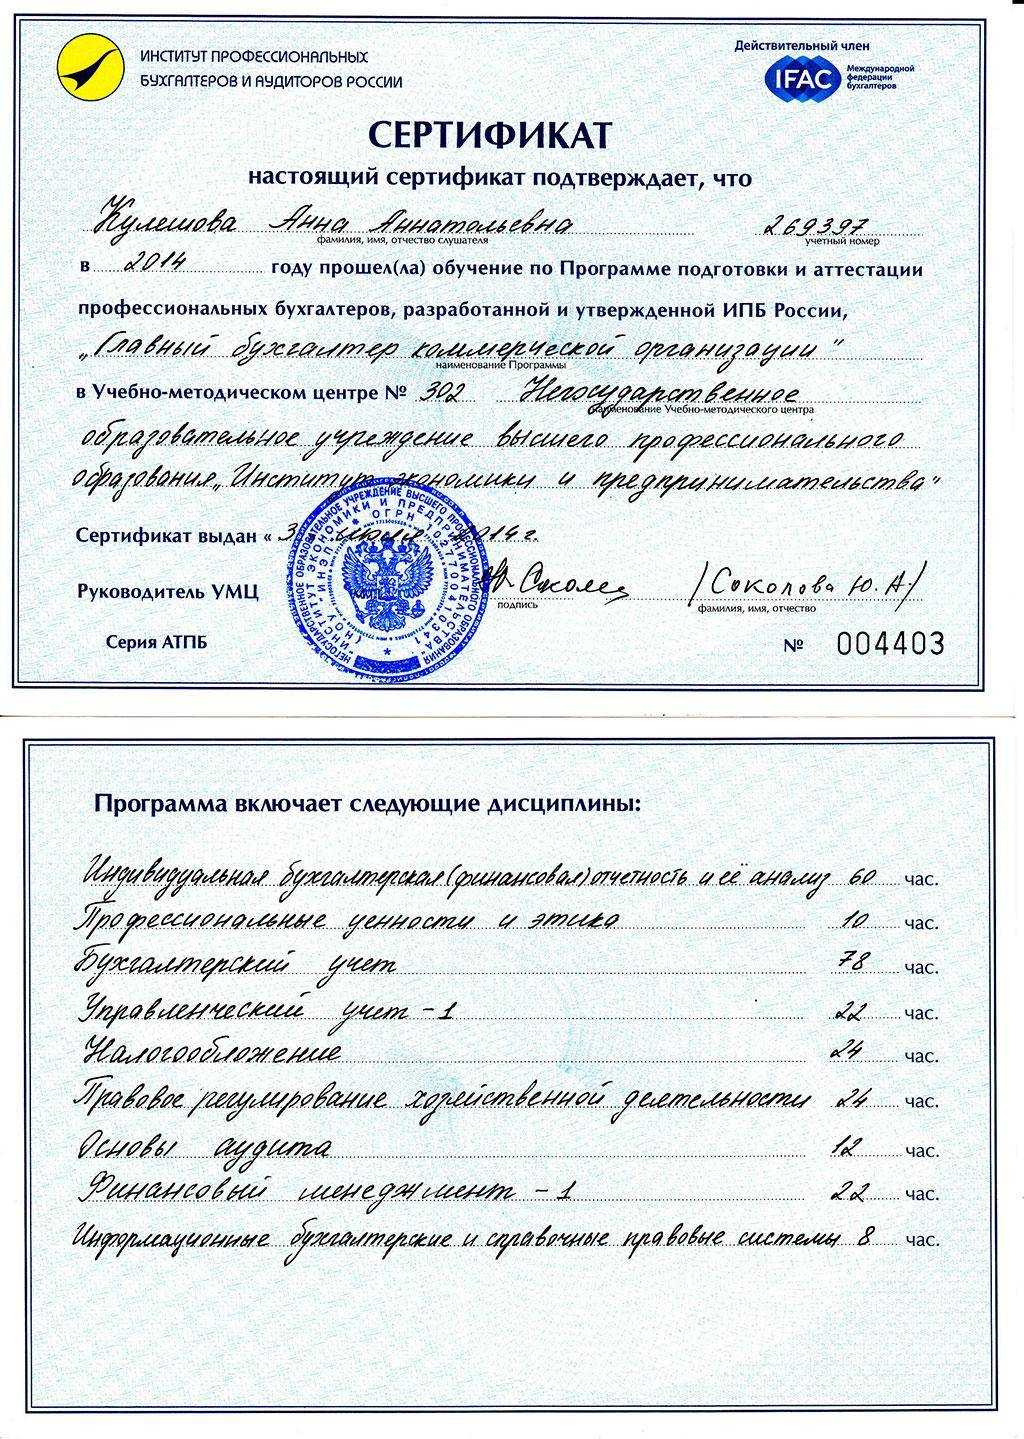 ИНСТИТУТ ПРОФЕССИОНАЛЬНЫХ
БУХГАЛТЕРОВ И АУДИТОРОВ РОССИИ
Действительный член
IFAC
Международной
федерации
бухгалтеров
СЕРТИФИКАТ
настоящий сертификат подтверждает, что
Кулешова Анна Аннатольевна 269397
фамилия, имя, отчество слушателя учетный номер
в 2014 году прошел(ла) обучение по Программе подготовки и аттестации
профессиональных бухгалтеров, разработанной и утвержденной ИПБ России,
„Главный бухгалтер коммерческой организации"
наименование Программы
в Учебно-методическом центре № 302 Негосударственное
наименование Учебно-методического центра
образовательное учреждение высшего профессионального
образования „Институт экономики и предпринимательства"
Сертификат выдан « 3 июля 2014г.
Руководитель УМЦ Ю. Соколов /Соколова Ю. А/
подпись фамилия, имя, отчество
Серия АТПБ № 004403
Программа включает следующие дисциплины:
Индивидуальная бухгалтерская (финансовая) отчетность и её анализ 60 час.
Профессиональные ценности и этика 10 час.
Бухгалтерский учет 78 час.
Управленческий учет - 1 22 час.
Налогообложение 24 час.
Правовое регулирование хозяйственной деятельности 24 час.
Основы аудита 12 час.
Финансовый менеджмент - 1 22 час.
Информационные бухгалтерские и справочные правовые системы 8 час.